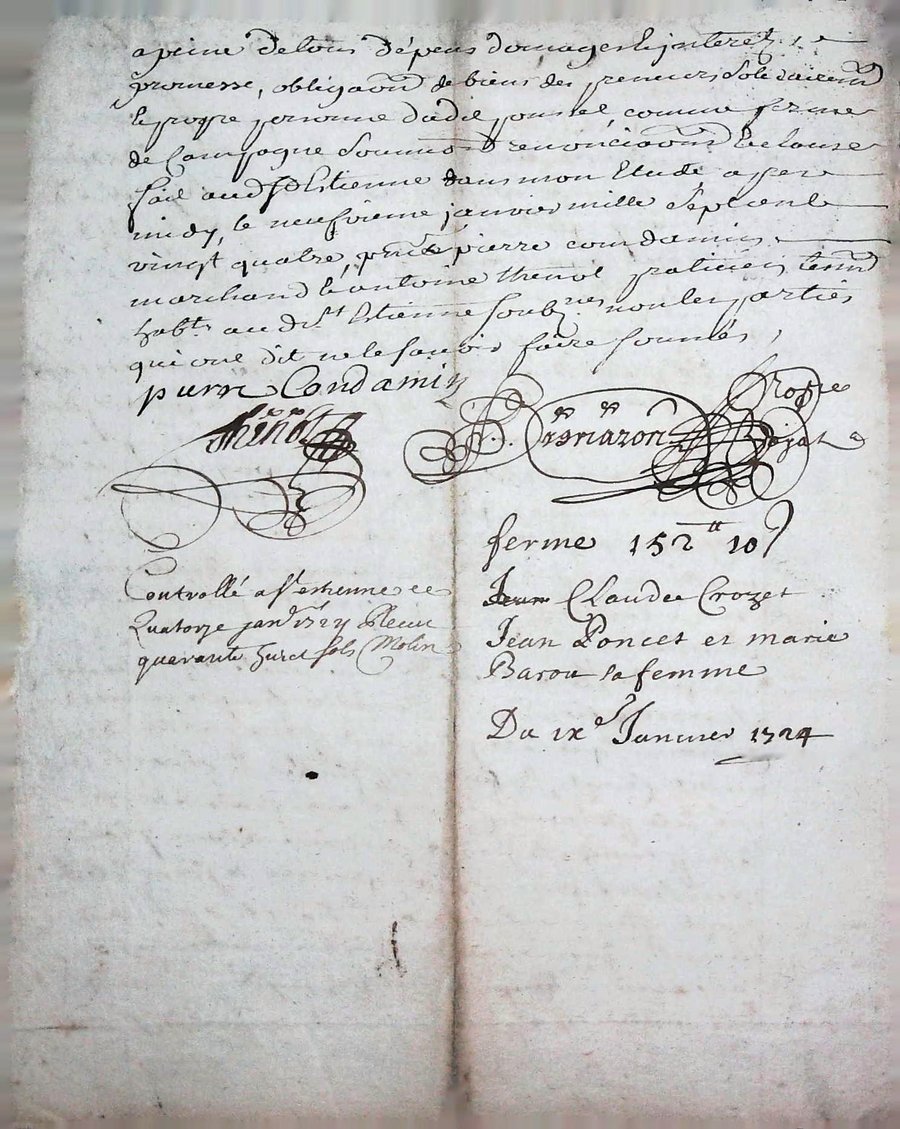 a peine de tous dépens domages & jnterets
promesse, obligaõn de biens des preneurs solidairemt
& propre personne dud. poncet comme ferme
de Campagne soumiõn renonciaõns & clauses
fait aud St Estienne dans mon Etude apres
midy, le neufvieme janvier mille septcent
vingt quatre, pnts pierre condamin
marchand & antoine thenot praticien temns
habts aud St Estienne soubnes non les parties
qui ont dit ne le savoir faire somés
pierre Condamin
thenot
ferme 152tt 10s
Controllé a st etienne ce
Quatorze janr 1724 Receu
quarante huict sols Molin
Jean Claude Crozet
Jean Poncet et marie
Barou sa femme
Du ixe Janvier 1724